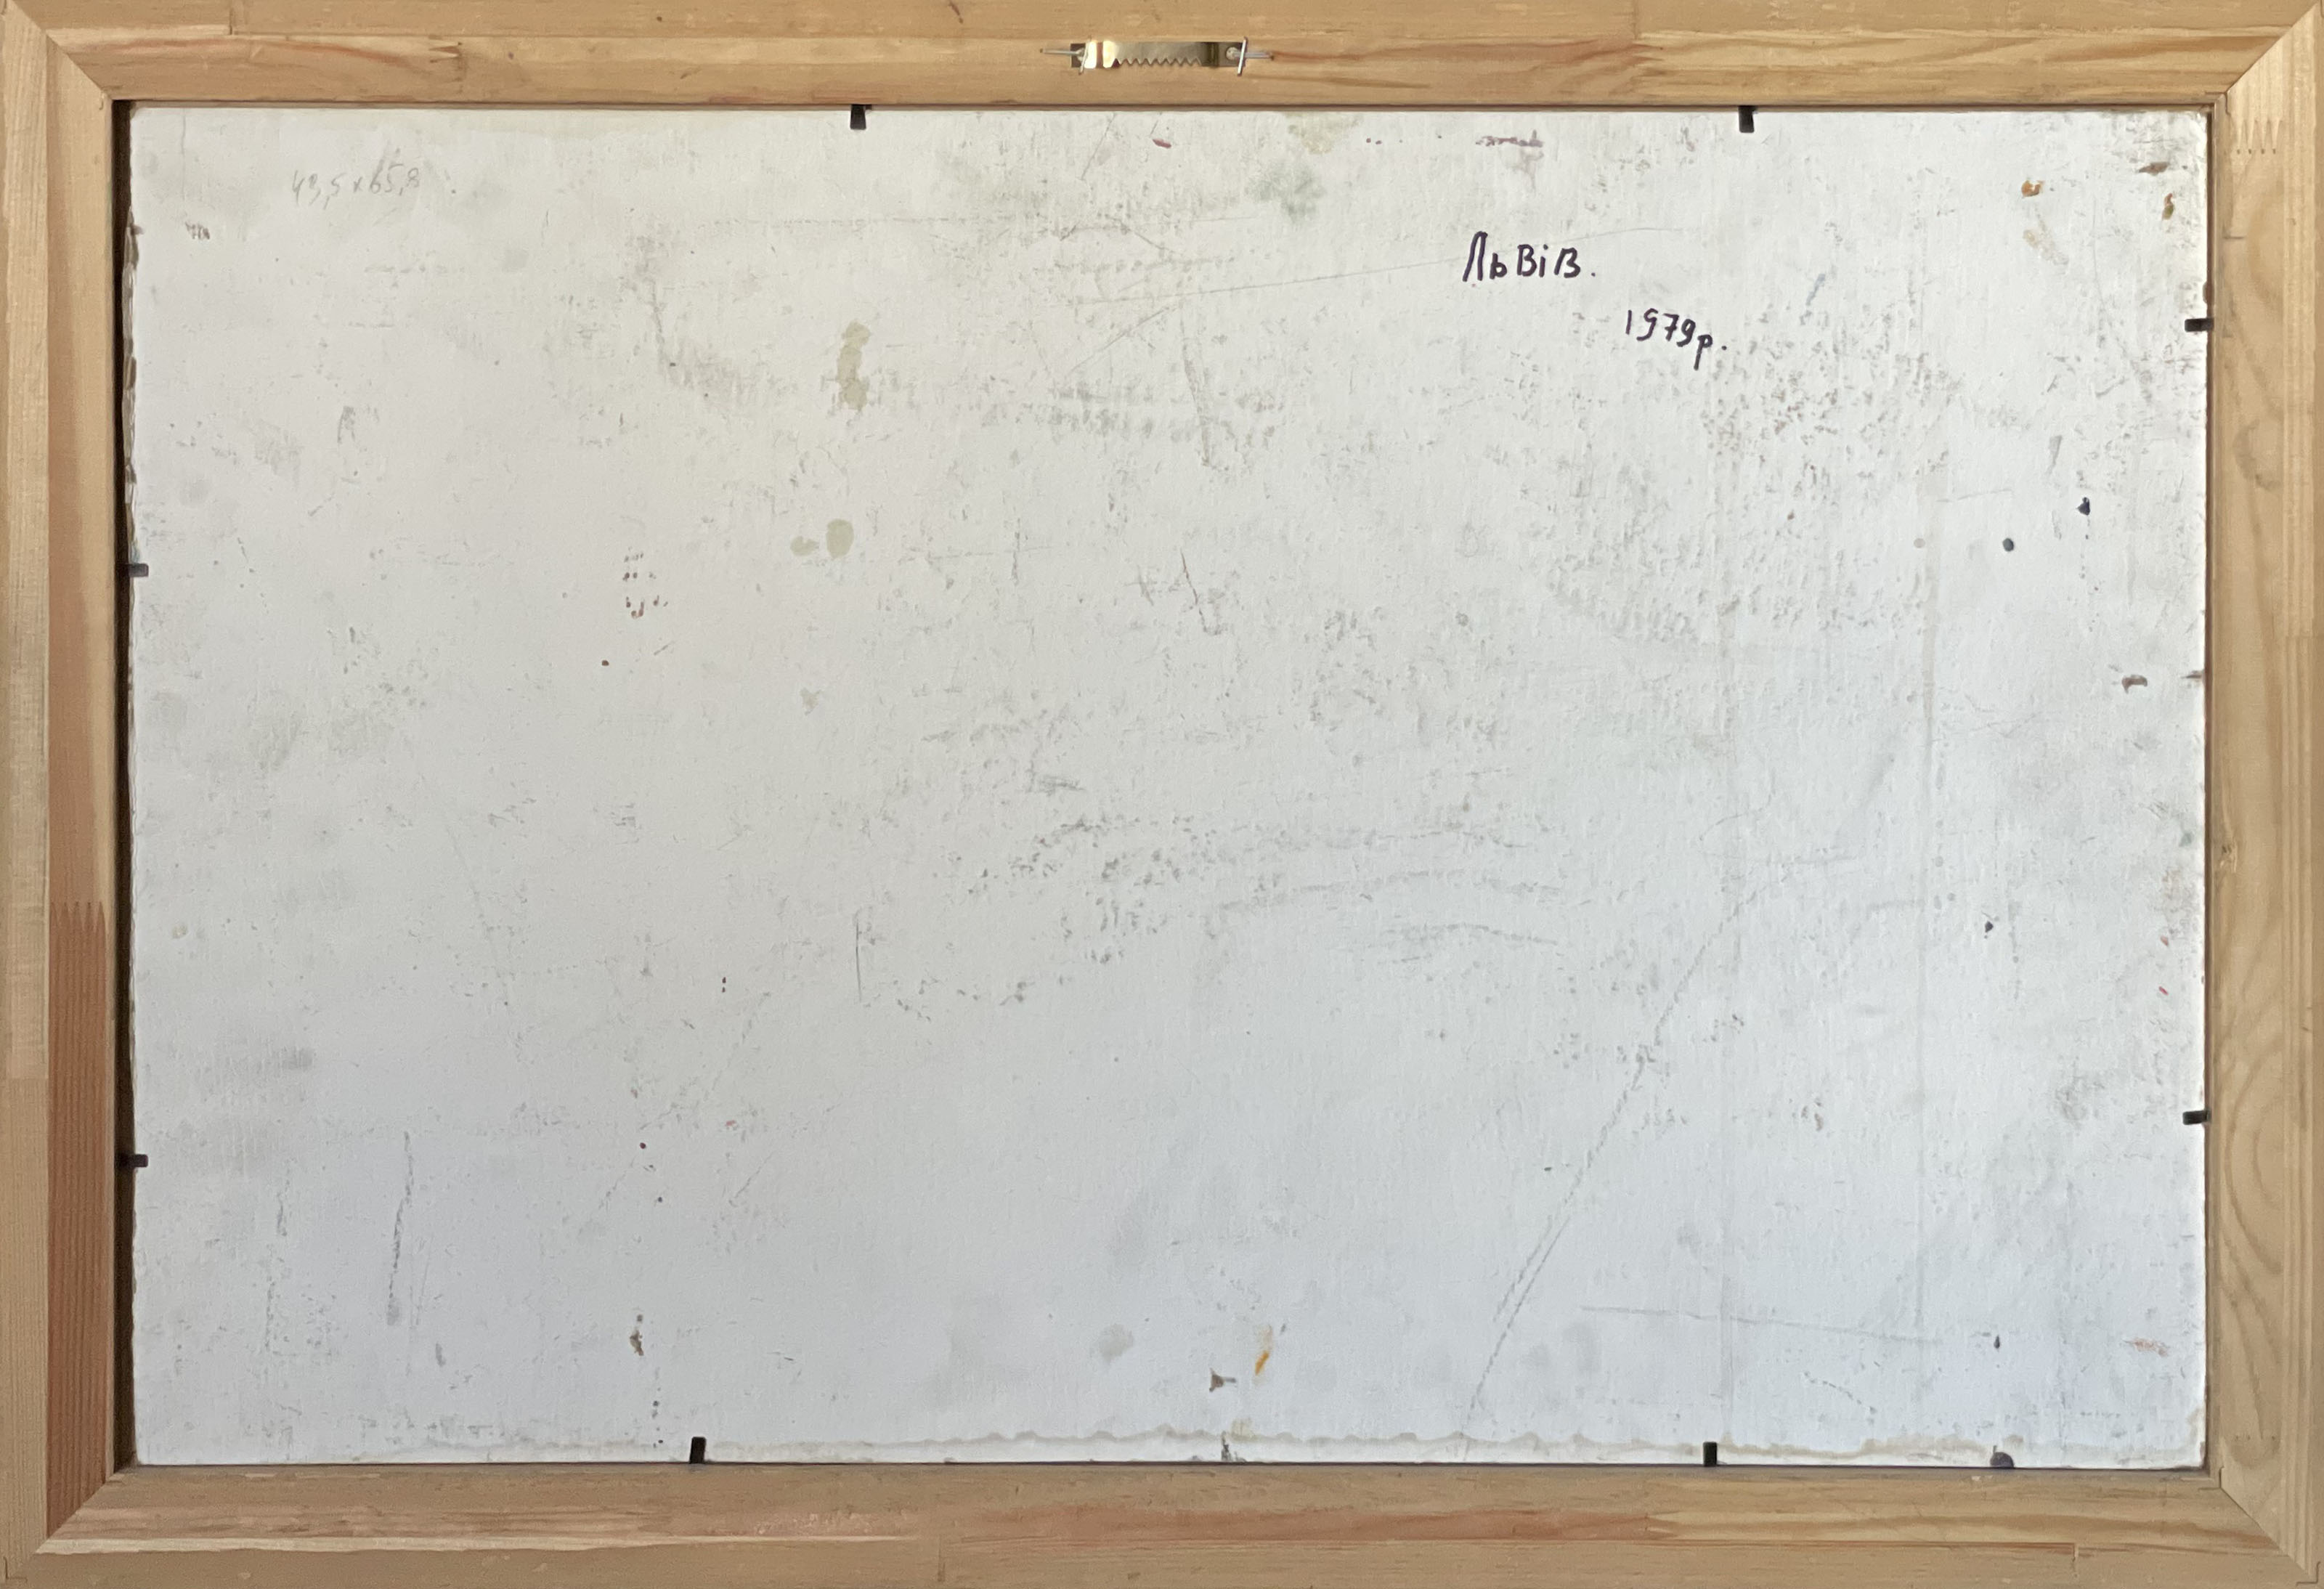 43,5 x 65,8
Львів.
1979р.